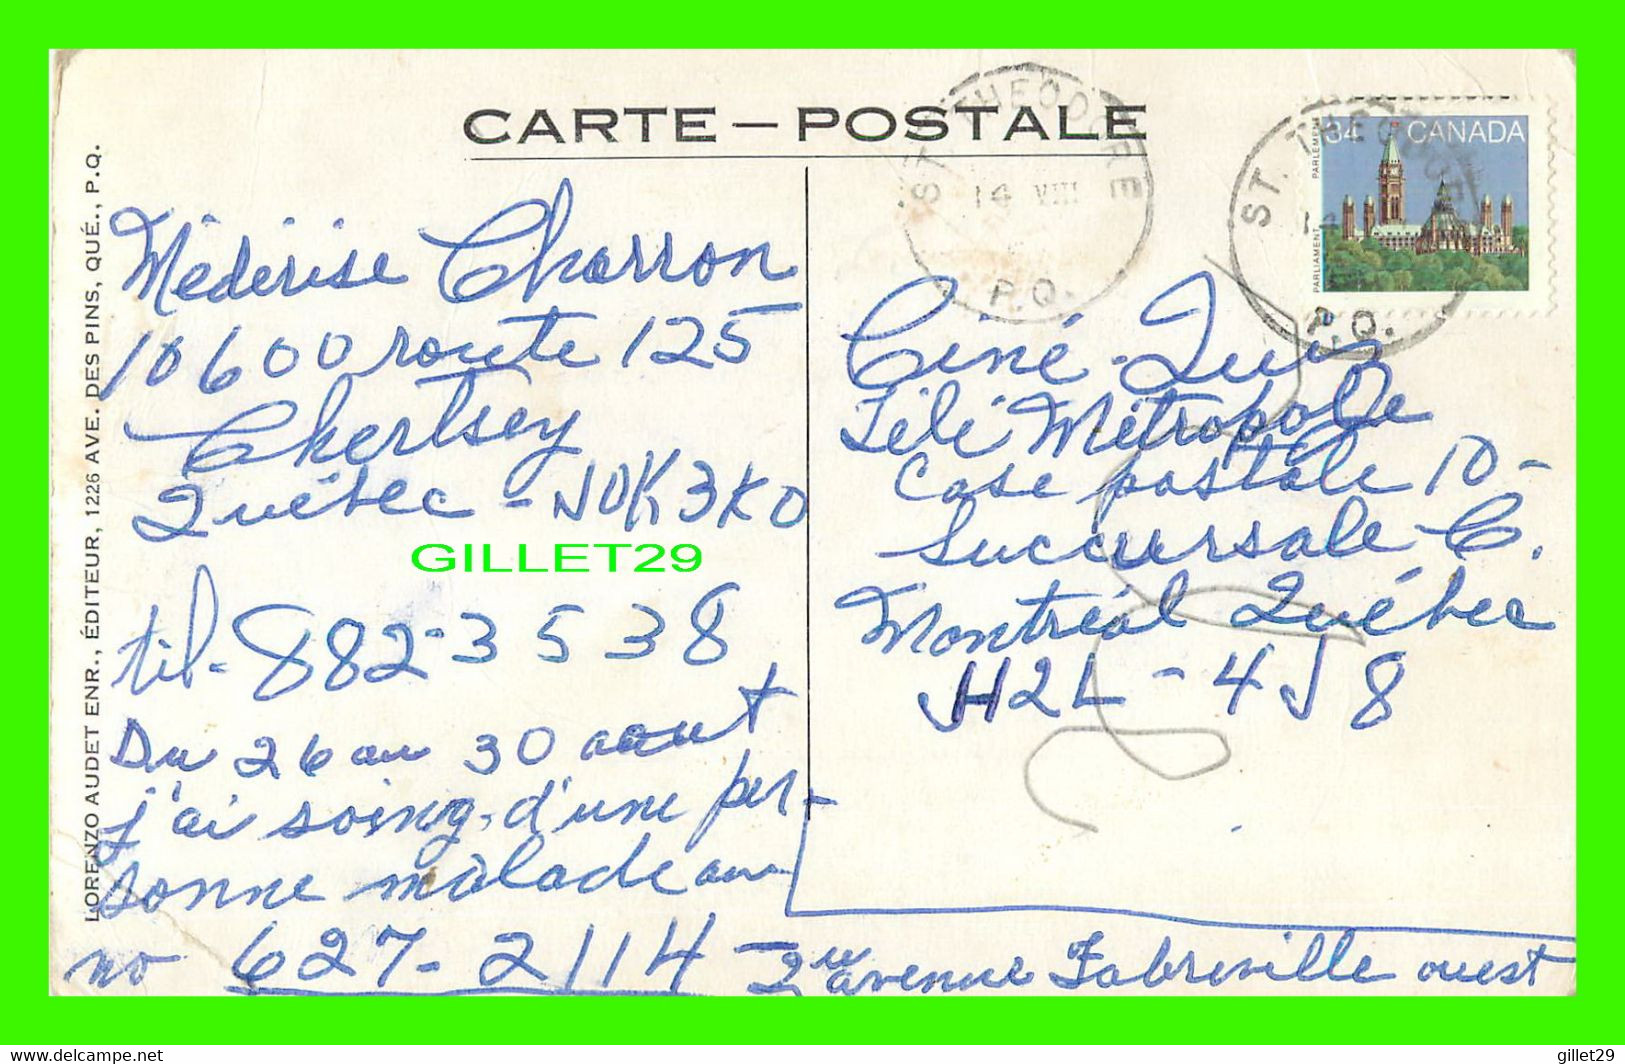 CARTE – POSTALE
ST. THEODORE
14 VIII
P.Q.
ST. THEODORE
P.Q.
34 CANADA
PARLEMENT
PARLIAMENT
LORENZO AUDET ENR., ÉDITEUR, 1226 AVE. DES PINS, QUÉ., P.Q.
Méderise Charron
10600 route 125
Chertsey
Québec - J0K3K0
GILLET29
tél- 882-3538
Du 26 au 30 aout
j'ai soing, d'une per-
sonne malade au
no 627-2114 2ieu avenue Fabreville ouest
Ciné-Quiz
Télé Métropole
Case postale 10-
Succursale C.
Montréal Québec
H2L - 4J8
delcampe.net
gillet29